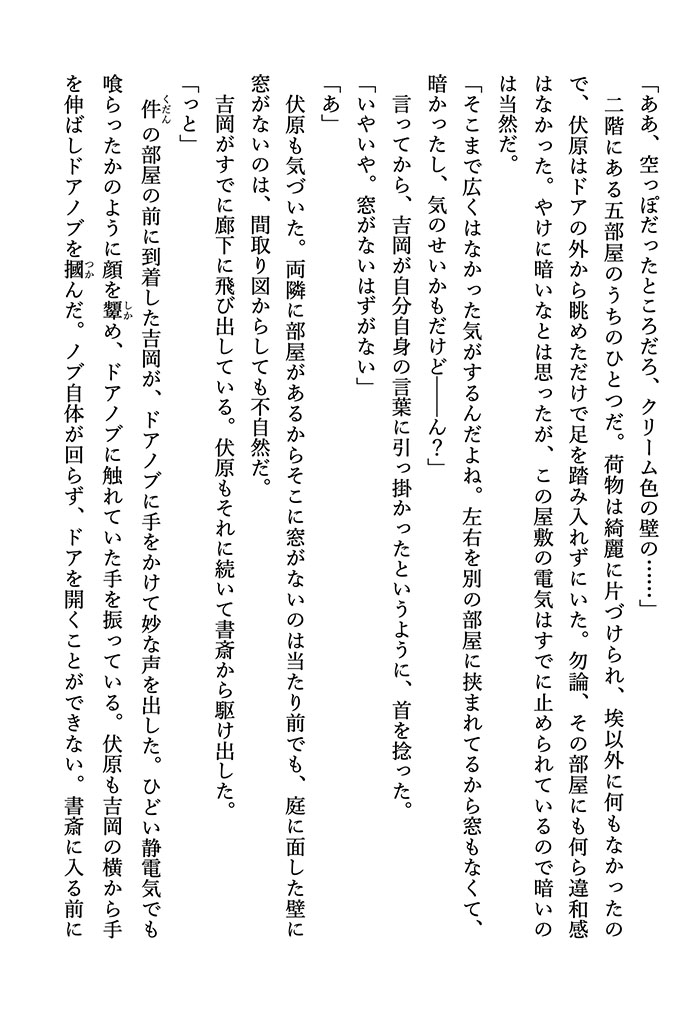 「ああ、空っぽだったところだろ、クリーム色の壁の……」
　二階にある五部屋のうちのひとつだ。荷物は綺麗に片づけられ、埃以外に何もなかったの
で、伏原はドアの外から眺めただけで足を踏み入れずにいた。勿論、その部屋にも何ら違和感
はなかった。やけに暗いなとは思ったが、この屋敷の電気はすでに止められているので暗いの
は当然だ。
「そこまで広くはなかった気がするんだよね。左右を別の部屋に挟まれてるから窓もなくて、
暗かったし、気のせいかもだけど――ん？」
　言ってから、吉岡が自分自身の言葉に引っ掛かったというように、首を捻った。
「いやいや。窓がないはずがない」
「あ」
　伏原も気づいた。両隣に部屋があるからそこに窓がないのは当たり前でも、庭に面した壁に
窓がないのは、間取り図からしても不自然だ。
　吉岡がすでに廊下に飛び出している。伏原もそれに続いて書斎から駆け出した。
「っと」
　件くだんの部屋の前に到着した吉岡が、ドアノブに手をかけて妙な声を出した。ひどい静電気でも
喰らったかのように顔を顰しかめ、ドアノブに触れていた手を振っている。伏原も吉岡の横から手
を伸ばしドアノブを摑つかんだ。ノブ自体が回らず、ドアを開くことができない。書斎に入る前に